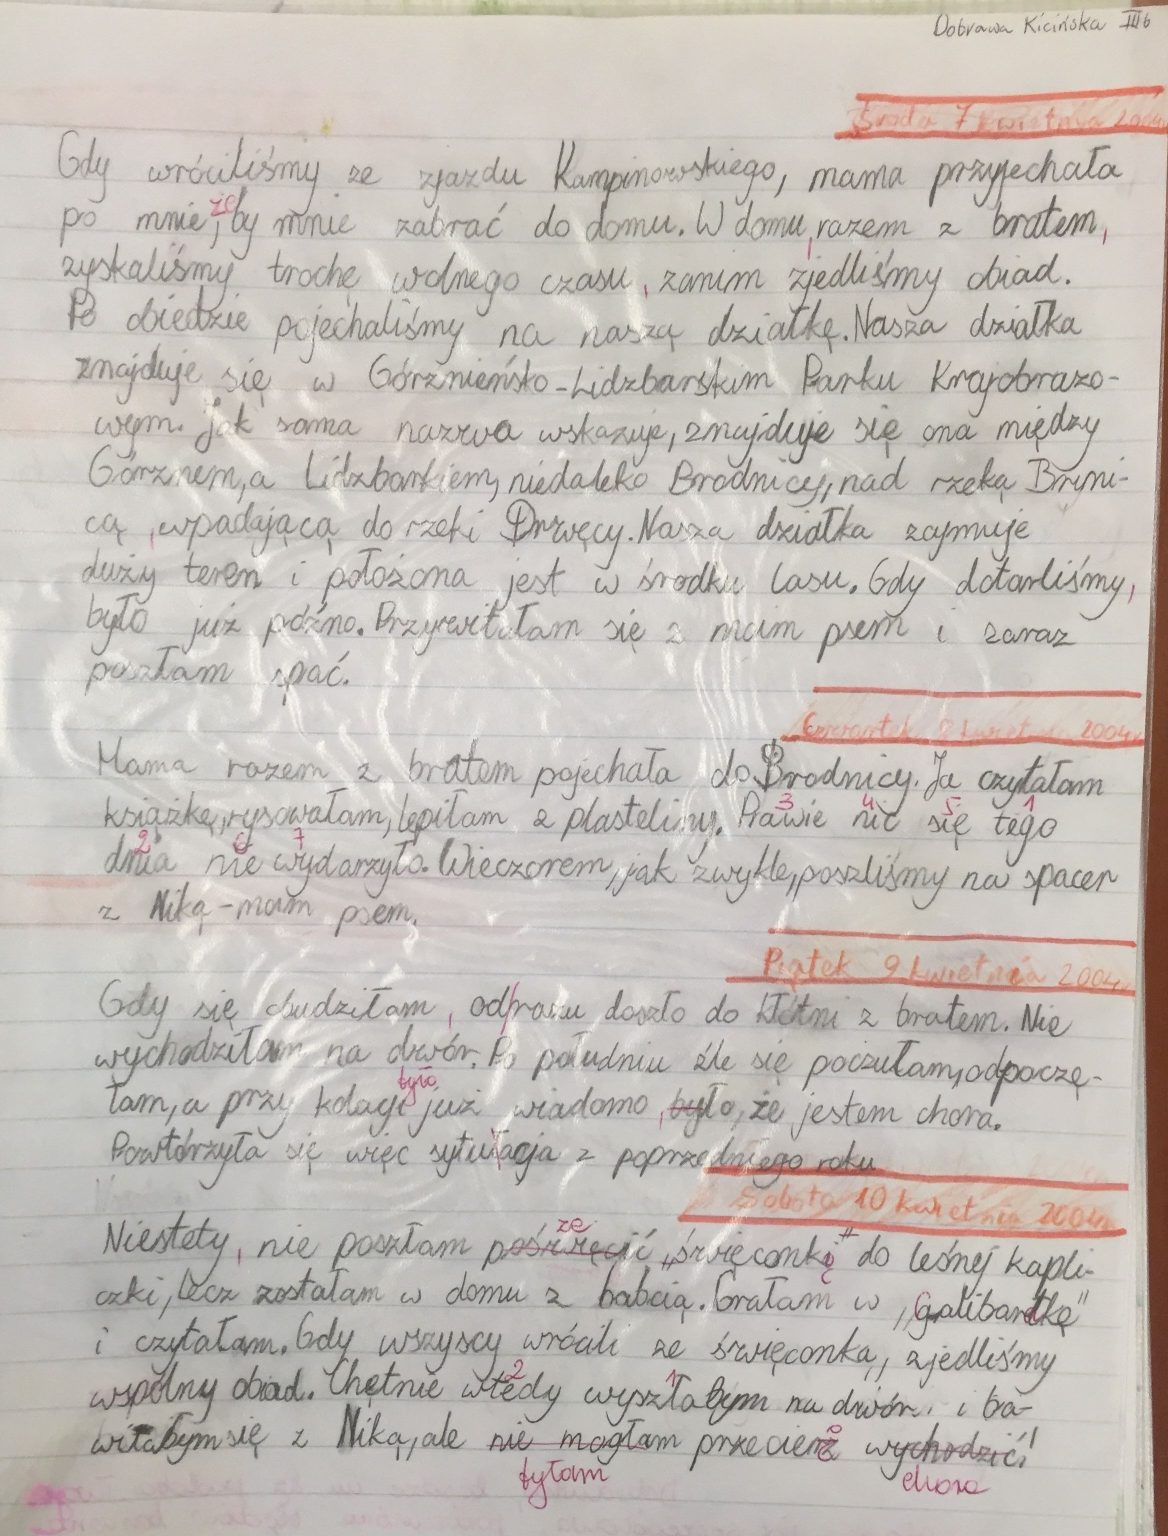 Dobrawa Kicińska IIIb
Środa 7 kwietnia 2004r
Gdy wróciliśmy ze zjazdu Kampinowskiego, mama przyjechała
że
po mnie, by mnie zabrać do domu. W domu, razem z bratem,
zyskaliśmy trochę wolnego czasu, zanim zjedliśmy obiad.
Po obiedzie pojechaliśmy na naszą działkę. Nasza działka
znajduje się w Górznieńsko-Lidzbarskim Parku Krajobrazo-
wym. Jak sama nazwa wskazuje, znajduje się ona między
Górznem, a Lidzbarkiem, niedaleko Brodnicy, nad rzeką Bryni-
cą, wpadającą do rzeki Drwęcy. Nasza działka zajmuje
duży teren i położona jest w środku lasu. Gdy dotarliśmy,
było już późno. Przywitałam się z moim psem i zaraz
poszłam spać.
Czwartek 8 kwietnia 2004r
Mama razem z bratem pojechała do Brodnicy. Ja czytałam
książkę, rysowałam, lepiłam z plasteliny. Prawie nic się tego
3 4 5 1
dnia nie wydarzyło. Wieczorem, jak zwykle, poszliśmy na spacer
2 6 7
z Niką - moim psem.
Piątek 9 kwietnia 2004r
Gdy się obudziłam, od razu doszło do kłótni z bratem. Nie
wychodziłam na dwór. Po południu źle się poczułam, odpoczę-
było
łam, a przy kolacji już wiadomo, było, że jestem chora.
Powtórzyła się więc sytuacja z poprzedniego roku
Sobota 10 kwietnia 2004r
ze
Niestety, nie poszłam poświęcić „święconką" do leśnej kapli-
czki, lecz zostałam w domu z babcią. Grałam w „Galibardkę"
i czytałam. Gdy wszyscy wrócili ze święconką, zjedliśmy
2 1
wspólny obiad. Chętnie wtedy wyszłabym na dwór i ba-
wiłabym się z Niką, ale nie mogłam przecież wychodzić!
byłam chora